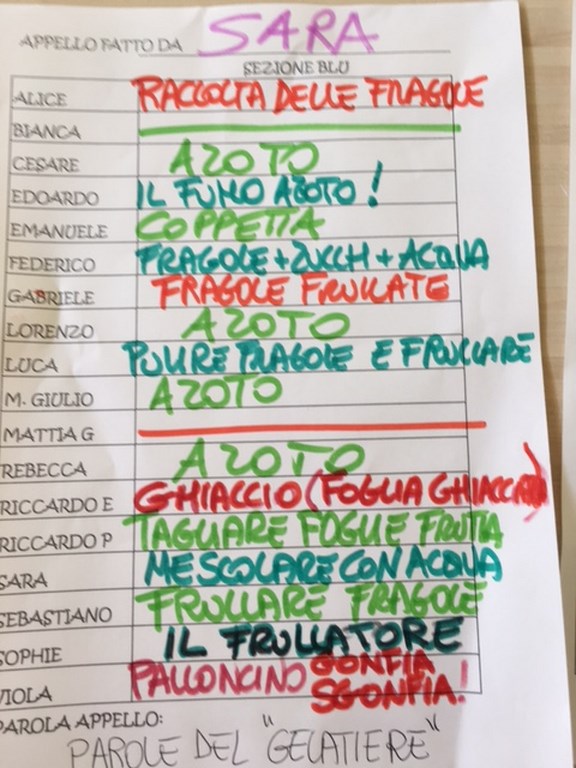 APPELLO FATTO DA SARA
SEZIONE BLU
ALICE RACCOLTA DELLE FRAGOLE
BIANCA
CESARE AZOTO
EDOARDO IL FUMO AZOTO!
EMANUELE COPPETTA
FEDERICO FRAGOLE + ZUCCH + ACQUA
GABRIELE FRAGOLE FRULLATE
LORENZO AZOTO
LUCA PULIRE FRAGOLE E FRULLARE
M. GIULIO AZOTO
MATTIA G
REBECCA AZOTO
RICCARDO E GHIACCIO (FOGLIA GHIACCIATA)
RICCARDO P TAGLIARE FOGLIE FRUTTA
SARA MESCOLARE CON ACQUA
SEBASTIANO FRULLARE FRAGOLE
SOPHIE IL FRULLATORE
VIOLA PALLONCINO GONFIA
SGONFIA!
PAROLA APPELLO:
PAROLE DEL "GELATIERE"